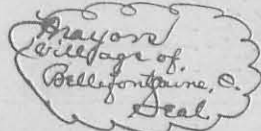 Mayon
village of
Bellefontaine, O.
Seal